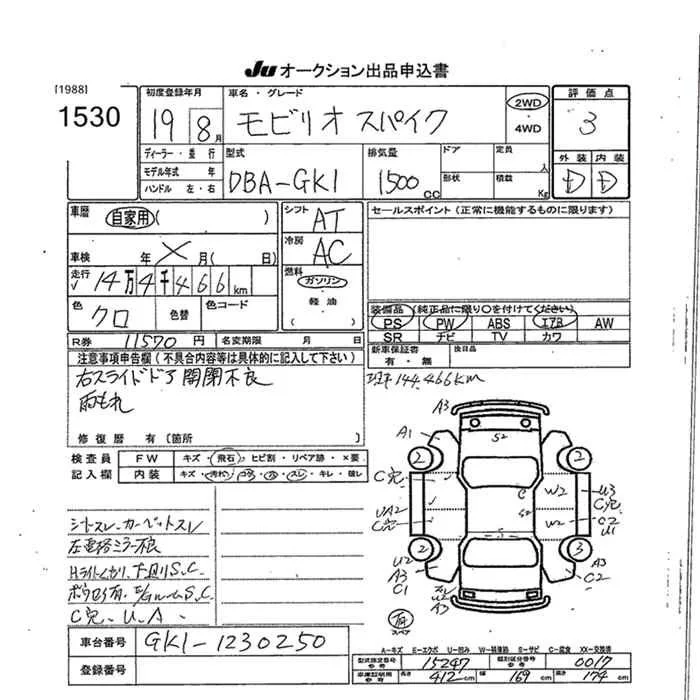 Ju オークション出品申込書
[1988]
1530
初度登録年月
19 8月
車名・グレード
モビリオ スパイク
2WD
・
4WD
評価点
3
外装 内装
D D
ディーラー・並行
モデル年式 年
ハンドル 左・右
型式
DBA-GK1
排気量
1500 cc
ドア
形状
定員 人
積載 Kg
車歴 自家用( )
車検 年 × 月( 日)
走行 √ 14万4千466 km
色 クロ 色替 色コード
シフト AT
冷房 AC
燃料
ガソリン
・
軽油
セールスポイント(正常に機能するものに限ります)
装備品(純正品に限り○を付けてください)
PS PW ABS エアB AW
SR ナビ TV カワ
R券 11570円 名変期限 月 日
新車保証書
有・無
後日品
注意事項申告欄(不具合内容等は具体的に記入して下さい)
右スライドドア開閉不良
雨もれ
修復歴 有〔箇所 〕
144,466km
検査員
記入欄
FW キズ・飛石・ヒビ割・リペア跡・×要
内装 キズ・汚れ・コゲ・穴・スレ・キレ・破れ
シートスレ、カーペットスレ
左電格ミラー不良
Hライトくもり、下廻りS、C
C穴、U、A
A3
A1
S2
2
2
C穴
C
W2
U3
C穴
UA2
C穴
S2
W2
C2
U1
S
2
3
U2
A3
C1
A3
C2
U2
A3
有
スペア
車台番号 GK1-1230250
登録番号
A=キズ E=エクボ U=凹み W=補修跡 S=サビ C=腐食 XX=交換済
型式指定番号
参考
15247
類別区分番号
参考
0017
車庫証明用
参考
長さ 412cm 幅 169cm 高さ 174cm